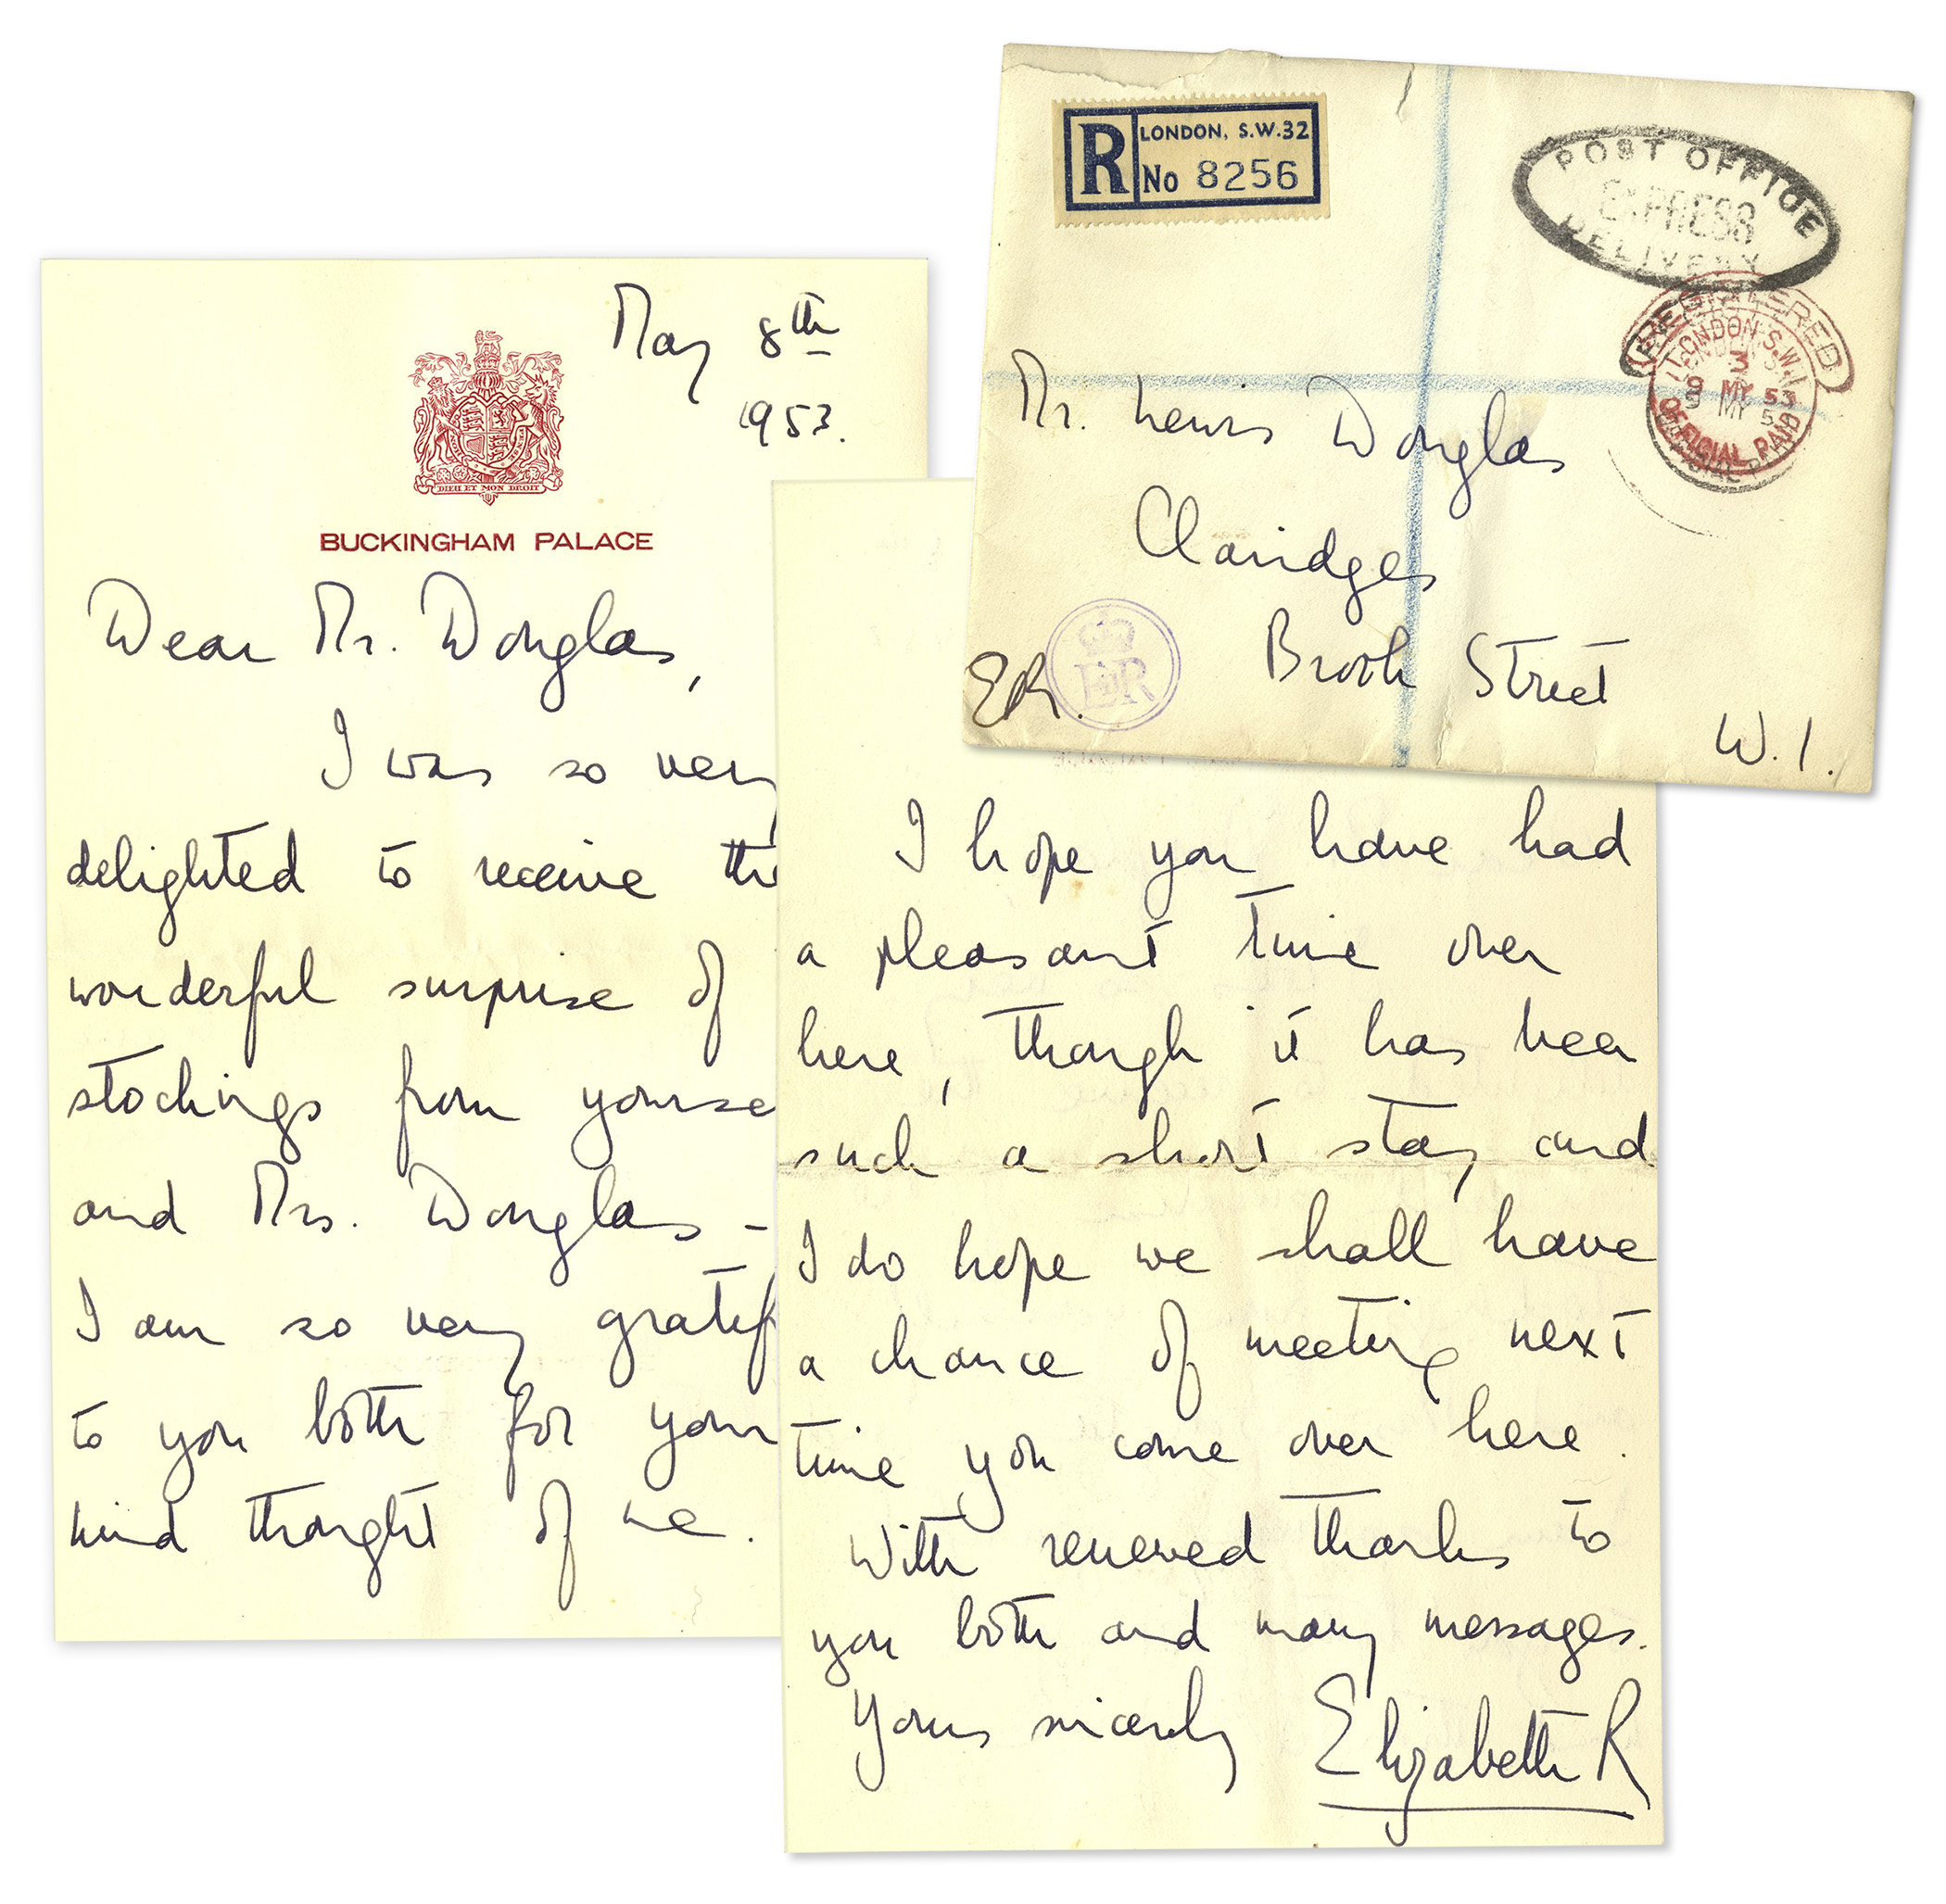 May 8th
1953.
DIEU ET MON DROIT
BUCKINGHAM PALACE
Dear Mr. Douglas,
I was so very
delighted to receive the
wonderful surprise of
stockings from yourse
and Mrs. Douglas –
I am so very gratef
to you both for your
kind thought of me.
I hope you have had
a pleasant time over
here, though it has been
such a short stay and
I do hope we shall have
a chance of meeting next
time you come over here.
With renewed thanks to
you both and many messages.
Yours sincerely
Elizabeth R
R
LONDON, S.W.32
No 8256
POST OFFICE
EXPRESS
DELIVERY
REGISTERED
LONDON S.W.1
3
9 MY 53
OFFICIAL PAID
Mr. Lewis Douglas
Claridges
Brook Street
W.1.
ER.
EIIR